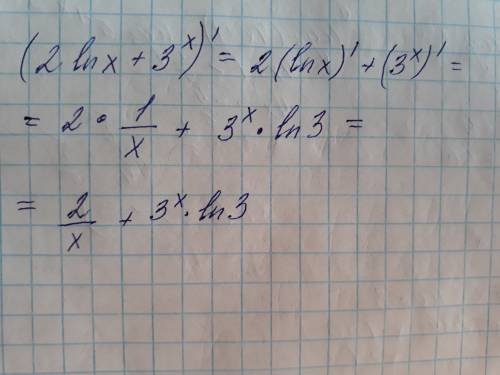 (2 ln x + 3^x)' = 2(ln x)' + (3^x)' =
= 2 • 1/x + 3^x · ln 3 =
= 2/x + 3^x · ln 3